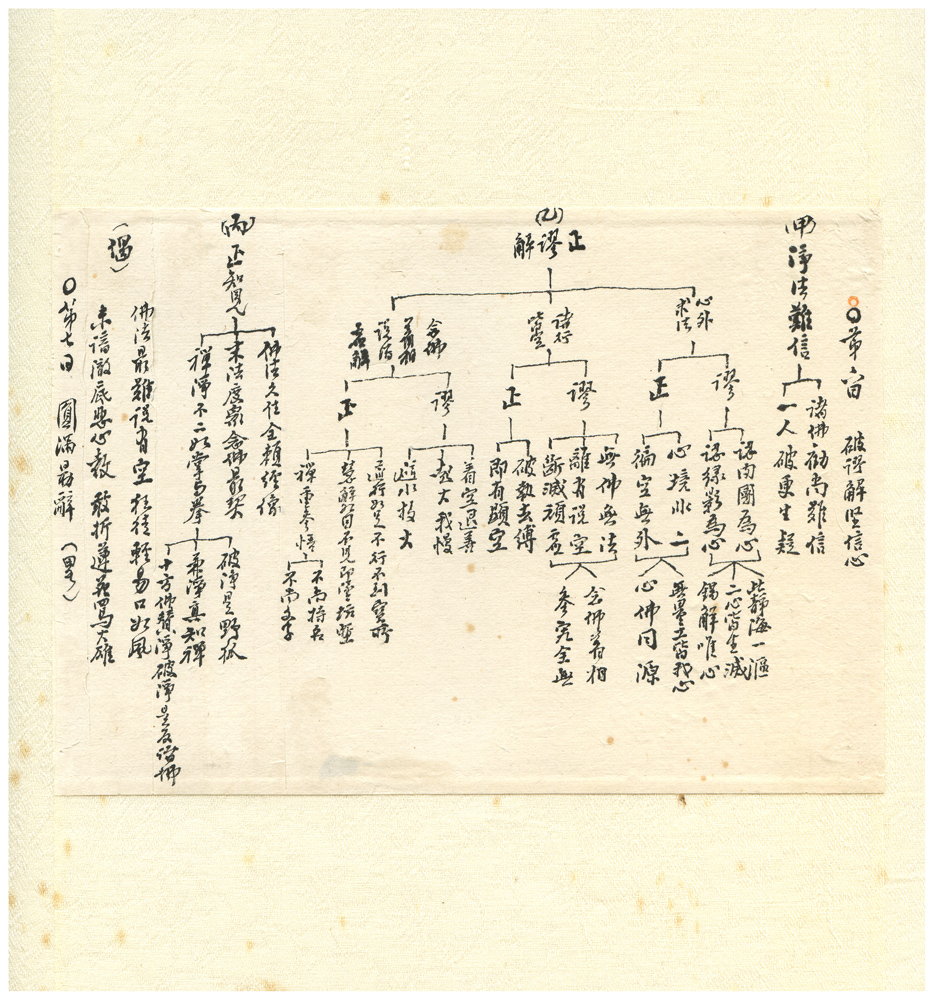 ○第六日　破謬解堅信心
(甲)淨法難信
諸佛勸尚難信
一人破更生疑
(乙)正謬解
心外求法
謬
認肉團為心
認緣影為心
此靜海一漚
二心皆生滅
錯解唯心
正
心境非二
徧空無外
無量土皆我心
心佛同源
諸行皆空
謬
無佛無法
離有說空
斷滅頑空
念佛著相
參究全無
正
破執去縛
即有顯空
念佛著相
說法名解
謬
着空退善
妄大我慢
正
慧解如目不見即墮坑塹
禪重參悟
不尚持名
不尚文字
(丙)正知見
佛法久住全賴經像
末法度眾念佛最契
禪淨不二如掌與拳
破淨是野狐
弄淨真知禪
十方佛讚淨破淨是反諸佛
(偈)
佛法最難說有空　狂徒輕易口如風
未諳澈底悲心教　敢折蓮花罵大雄
○第七日　圓滿易辭